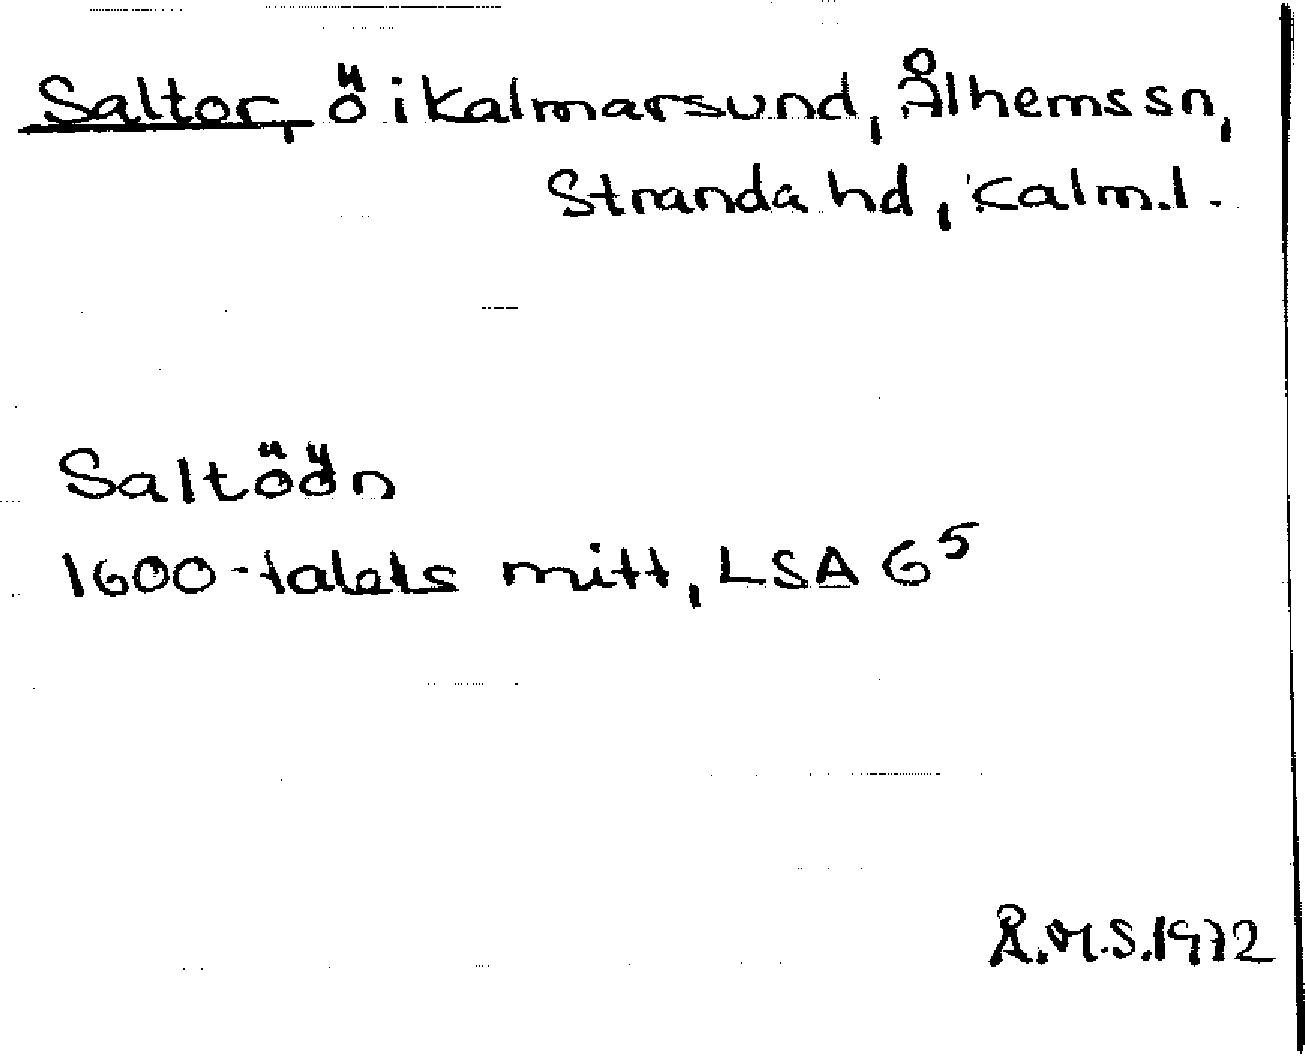 Saltor, ö i Kalmarsund, Ålhems sn,
Stranda hd, Kalm.l.
Saltöön
1600-talets mitt, LSA G⁵
Å.M.S.1972